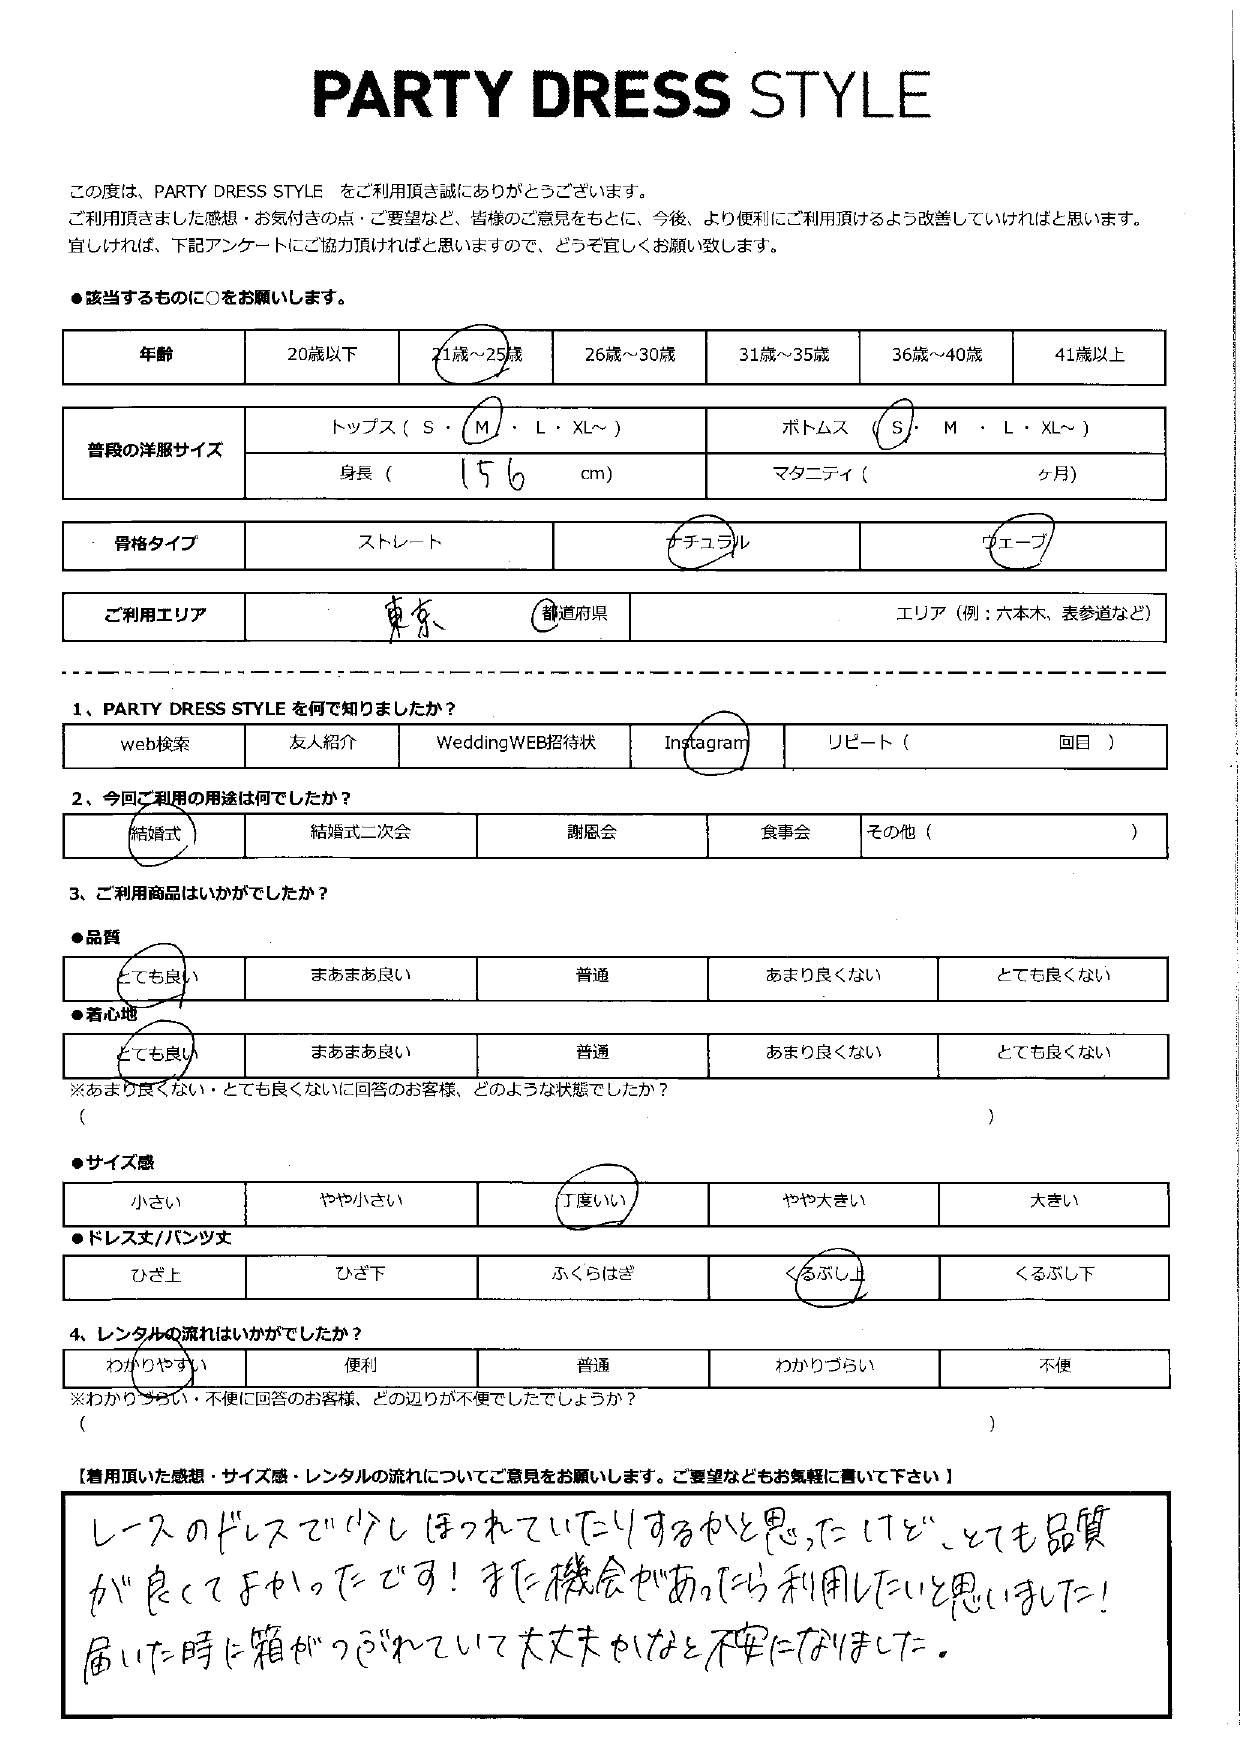 PARTY DRESS STYLE
この度は、PARTY DRESS STYLE をご利用頂き誠にありがとうございます。
ご利用頂きました感想・お気付きの点・ご要望など、皆様のご意見をもとに、今後、より便利にご利用頂けるよう改善していければと思います。
宜しければ、下記アンケートにご協力頂ければと思いますので、どうぞ宜しくお願い致します。
●該当するものに○をお願いします。
年齢 20歳以下 21歳～25歳 26歳～30歳 31歳～35歳 36歳～40歳 41歳以上
普段の洋服サイズ トップス ( S ・ M ・ L ・ XL～ ) ボトムス ( S ・ M ・ L ・ XL～ )
身長 ( 156 cm) マタニティ ( ヶ月)
骨格タイプ ストレート ナチュラル ウェーブ
ご利用エリア 東京 都道府県 エリア (例：六本木、表参道など)
1、PARTY DRESS STYLE を何で知りましたか？
web検索 友人紹介 WeddingWEB招待状 Instagram リピート ( 回目 )
2、今回ご利用の用途は何でしたか？
結婚式 結婚式二次会 謝恩会 食事会 その他 ( )
3、ご利用商品はいかがでしたか？
●品質
とても良い まあまあ良い 普通 あまり良くない とても良くない
●着心地
とても良い まあまあ良い 普通 あまり良くない とても良くない
※あまり良くない・とても良くないに回答のお客様、どのような状態でしたか？
( )
●サイズ感
小さい やや小さい 丁度いい やや大きい 大きい
●ドレス丈/パンツ丈
ひざ上 ひざ下 ふくらはぎ くるぶし上 くるぶし下
4、レンタルの流れはいかがでしたか？
わかりやすい 便利 普通 わかりづらい 不便
※わかりづらい・不便に回答のお客様、どの辺りが不便でしたでしょうか？
( )
【着用頂いた感想・サイズ感・レンタルの流れについてご意見をお願いします。ご要望などもお気軽に書いて下さい 】
レースのドレスで少しほつれていたりするかと思ったけど、とても品質
が良くてよかったです！また機会があったら利用したいと思いました！
届いた時に箱がつぶれていて大丈夫かなと不安になりました。